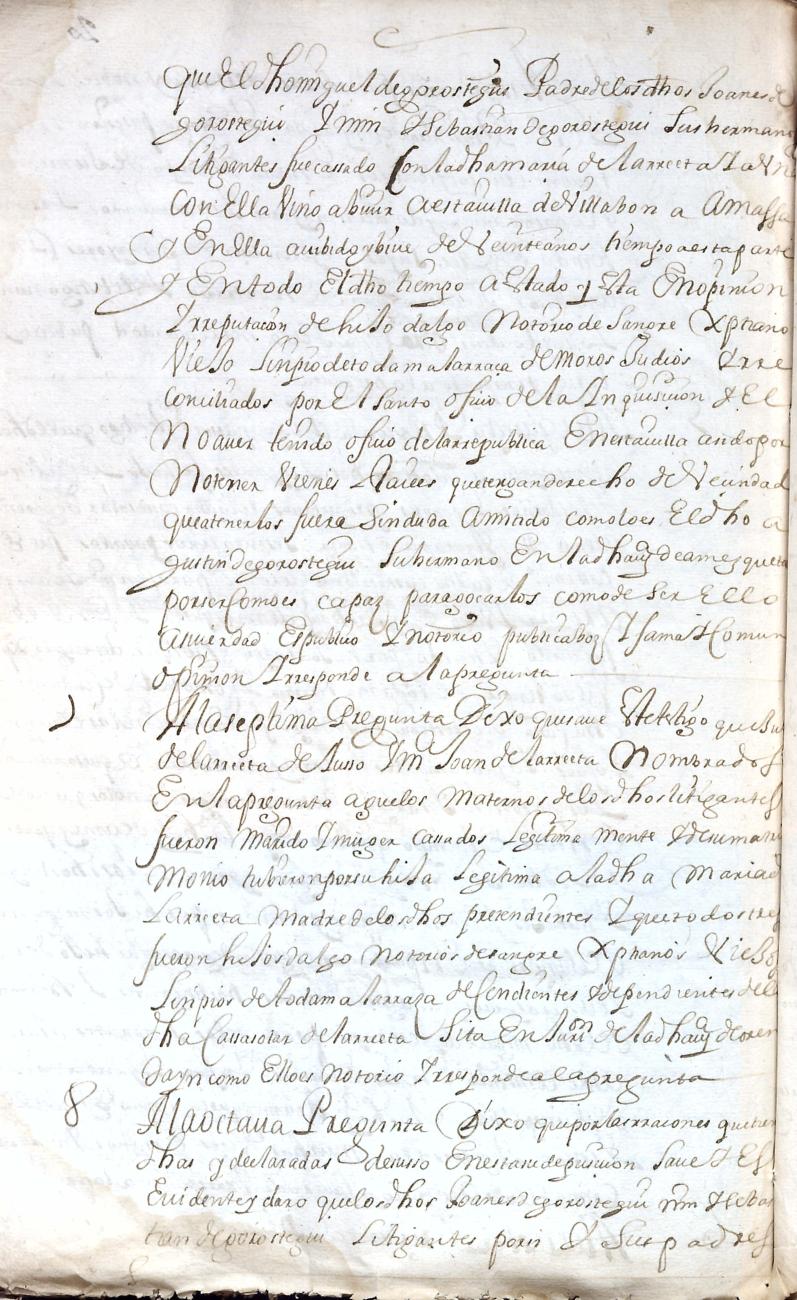 que El dho miguel de gorostegui Padre de los dhos Joanes de
gorostegui Y min Y sebastian de gorostegui sus hermanos
Litigantes fue cassado Con la dha maria de larreeta Ya Un
con Ella Vino a biuir a esta uilla de Villabon a Amassa
y En Ella a uibido y biue de Veinte anos tiempo a esta parte
y En todo El dho tiempo a Estado y Esta En opinion
Y rreputacion de hijo dalgo Notorio de Sangre Xptiano
Viejo Linpio de toda mala rraça de moros Judios Y rre
conciliados por El santo ofiçio de la Inquisicion Y El
No auer tenido ofiçio de la rrepublica En esta uilla a sido por
No tener Vienes Raices que tengan derecho de Vecindad
que a tenerlos fuera Sin duda Amitido como lo es El dho a
gustin de gorostegui su hermano En la dha uniд de amezqueta
por ser Como es capaz para goçarlos como de ser Ello
asi uerdad Es publico Y notorio publica boz Y fama Y Comun
opinion Y rresponde a la pregunta
7 A la septima Pregunta Dixo que saue Este testigo que
de larreeta de susso Y m Joan de larreeta Nombrados
En la pregunta aguelos maternos de los dhos litigantes
fueron marido Y muger cassados Legitima mente Y de su matri
monio tubieron por su hija Legitima a la dha Maria de
Larreeta madre de los dhos pretendientes Y que todos tres
fueron hijos dalgo notorios de sangre Xptianos Viejos
Linpios de toda mala rraza decendientes Y dependientes de la
dha Cassa solar de larreeta Sita En Juron de la dha uniд de oren
dayn como Ello es Notorio Y rresponde a la pregunta
8 A la octaua Pregunta Dixo que por las rraçones que tiene
dhas y declaradas de susso En este su depusicion saue Y Es
Euidente y claro que los dhos Joanes de gorostegui min Y sebas
tian de gorostegui Litigantes por si Y sus padres